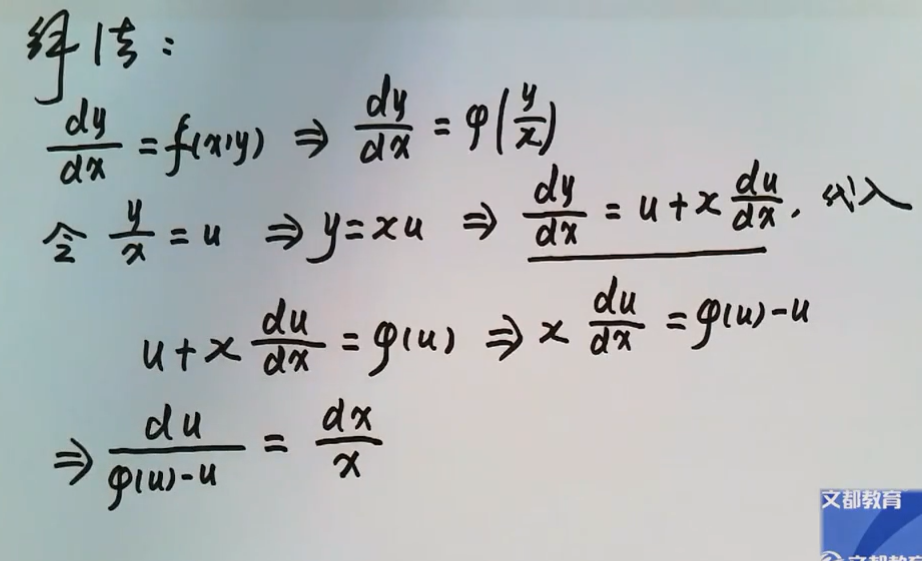 解法：
dy/dx = f(x,y) ⇒ dy/dx = φ(y/x)
令 y/x = u ⇒ y = xu ⇒ dy/dx = u + x du/dx, 代入
u + x du/dx = φ(u) ⇒ x du/dx = φ(u) - u
⇒ du/(φ(u) - u) = dx/x
文都教育
文都教育